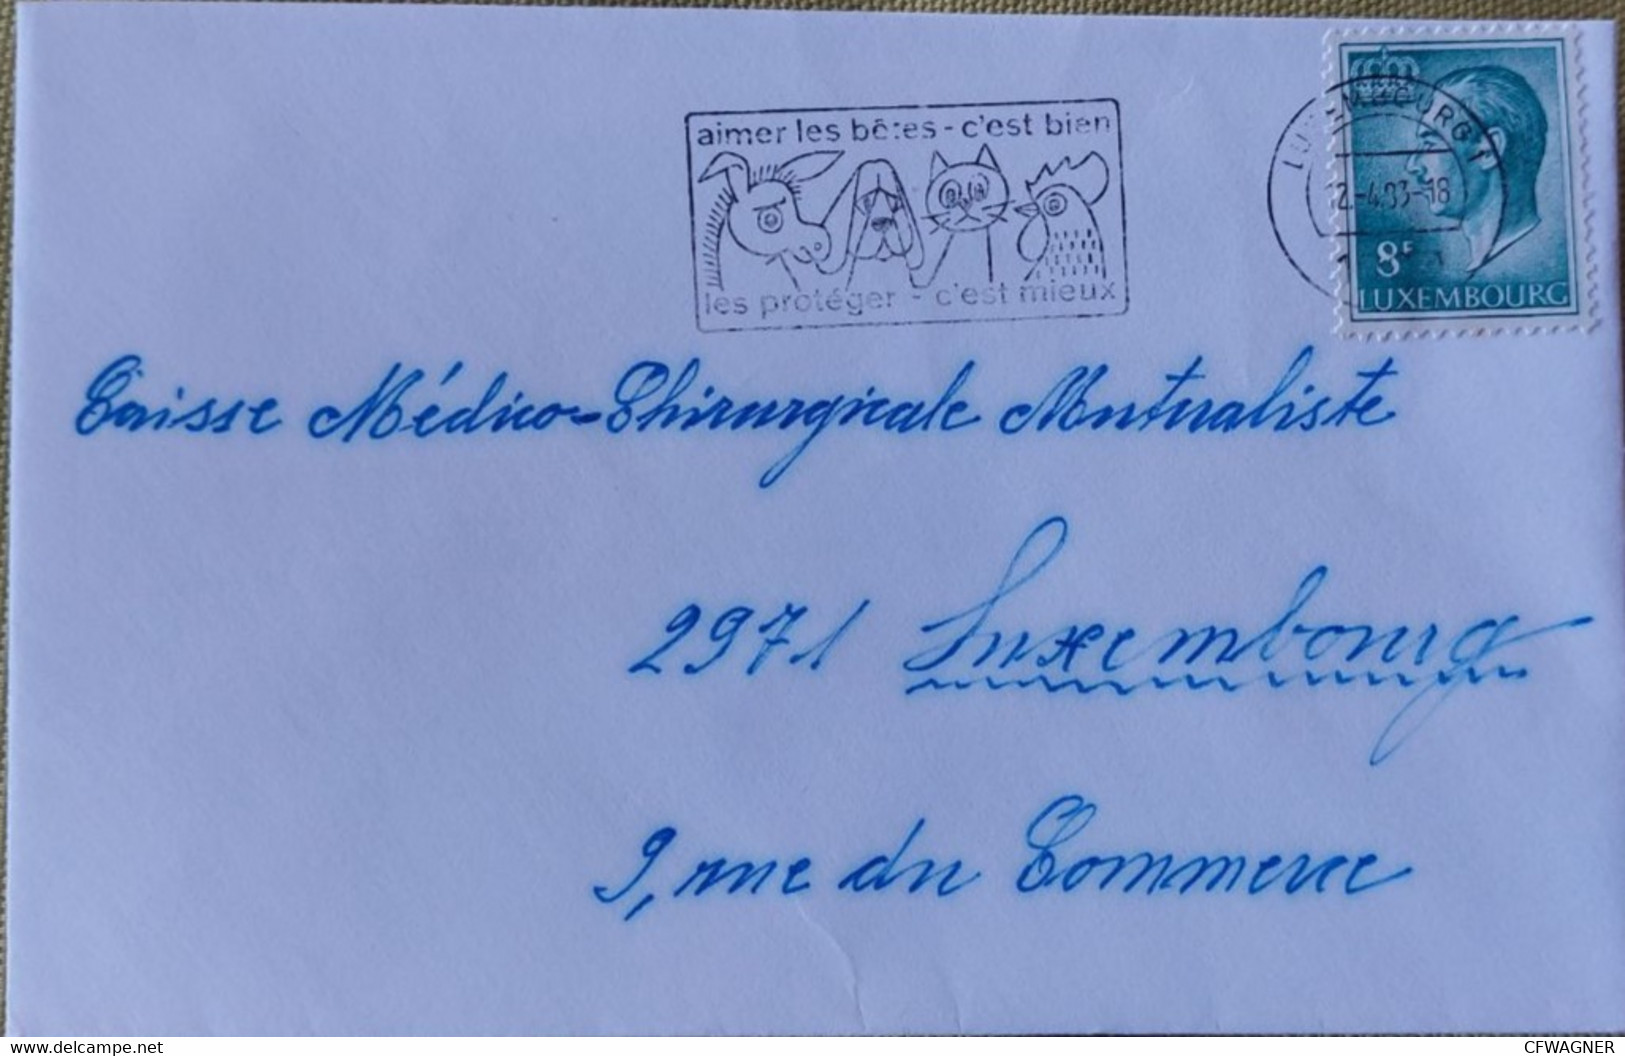 aimer les bêtes - c'est bien
les protéger - c'est mieux
LUXEMBOURG 1
12.-4.83-18
8F
LUXEMBOURG
Caisse Médico-Chirurgicale Mutualiste
2971 Luxembourg
9, rue du Commerce
delcampe.net
CFWAGNER